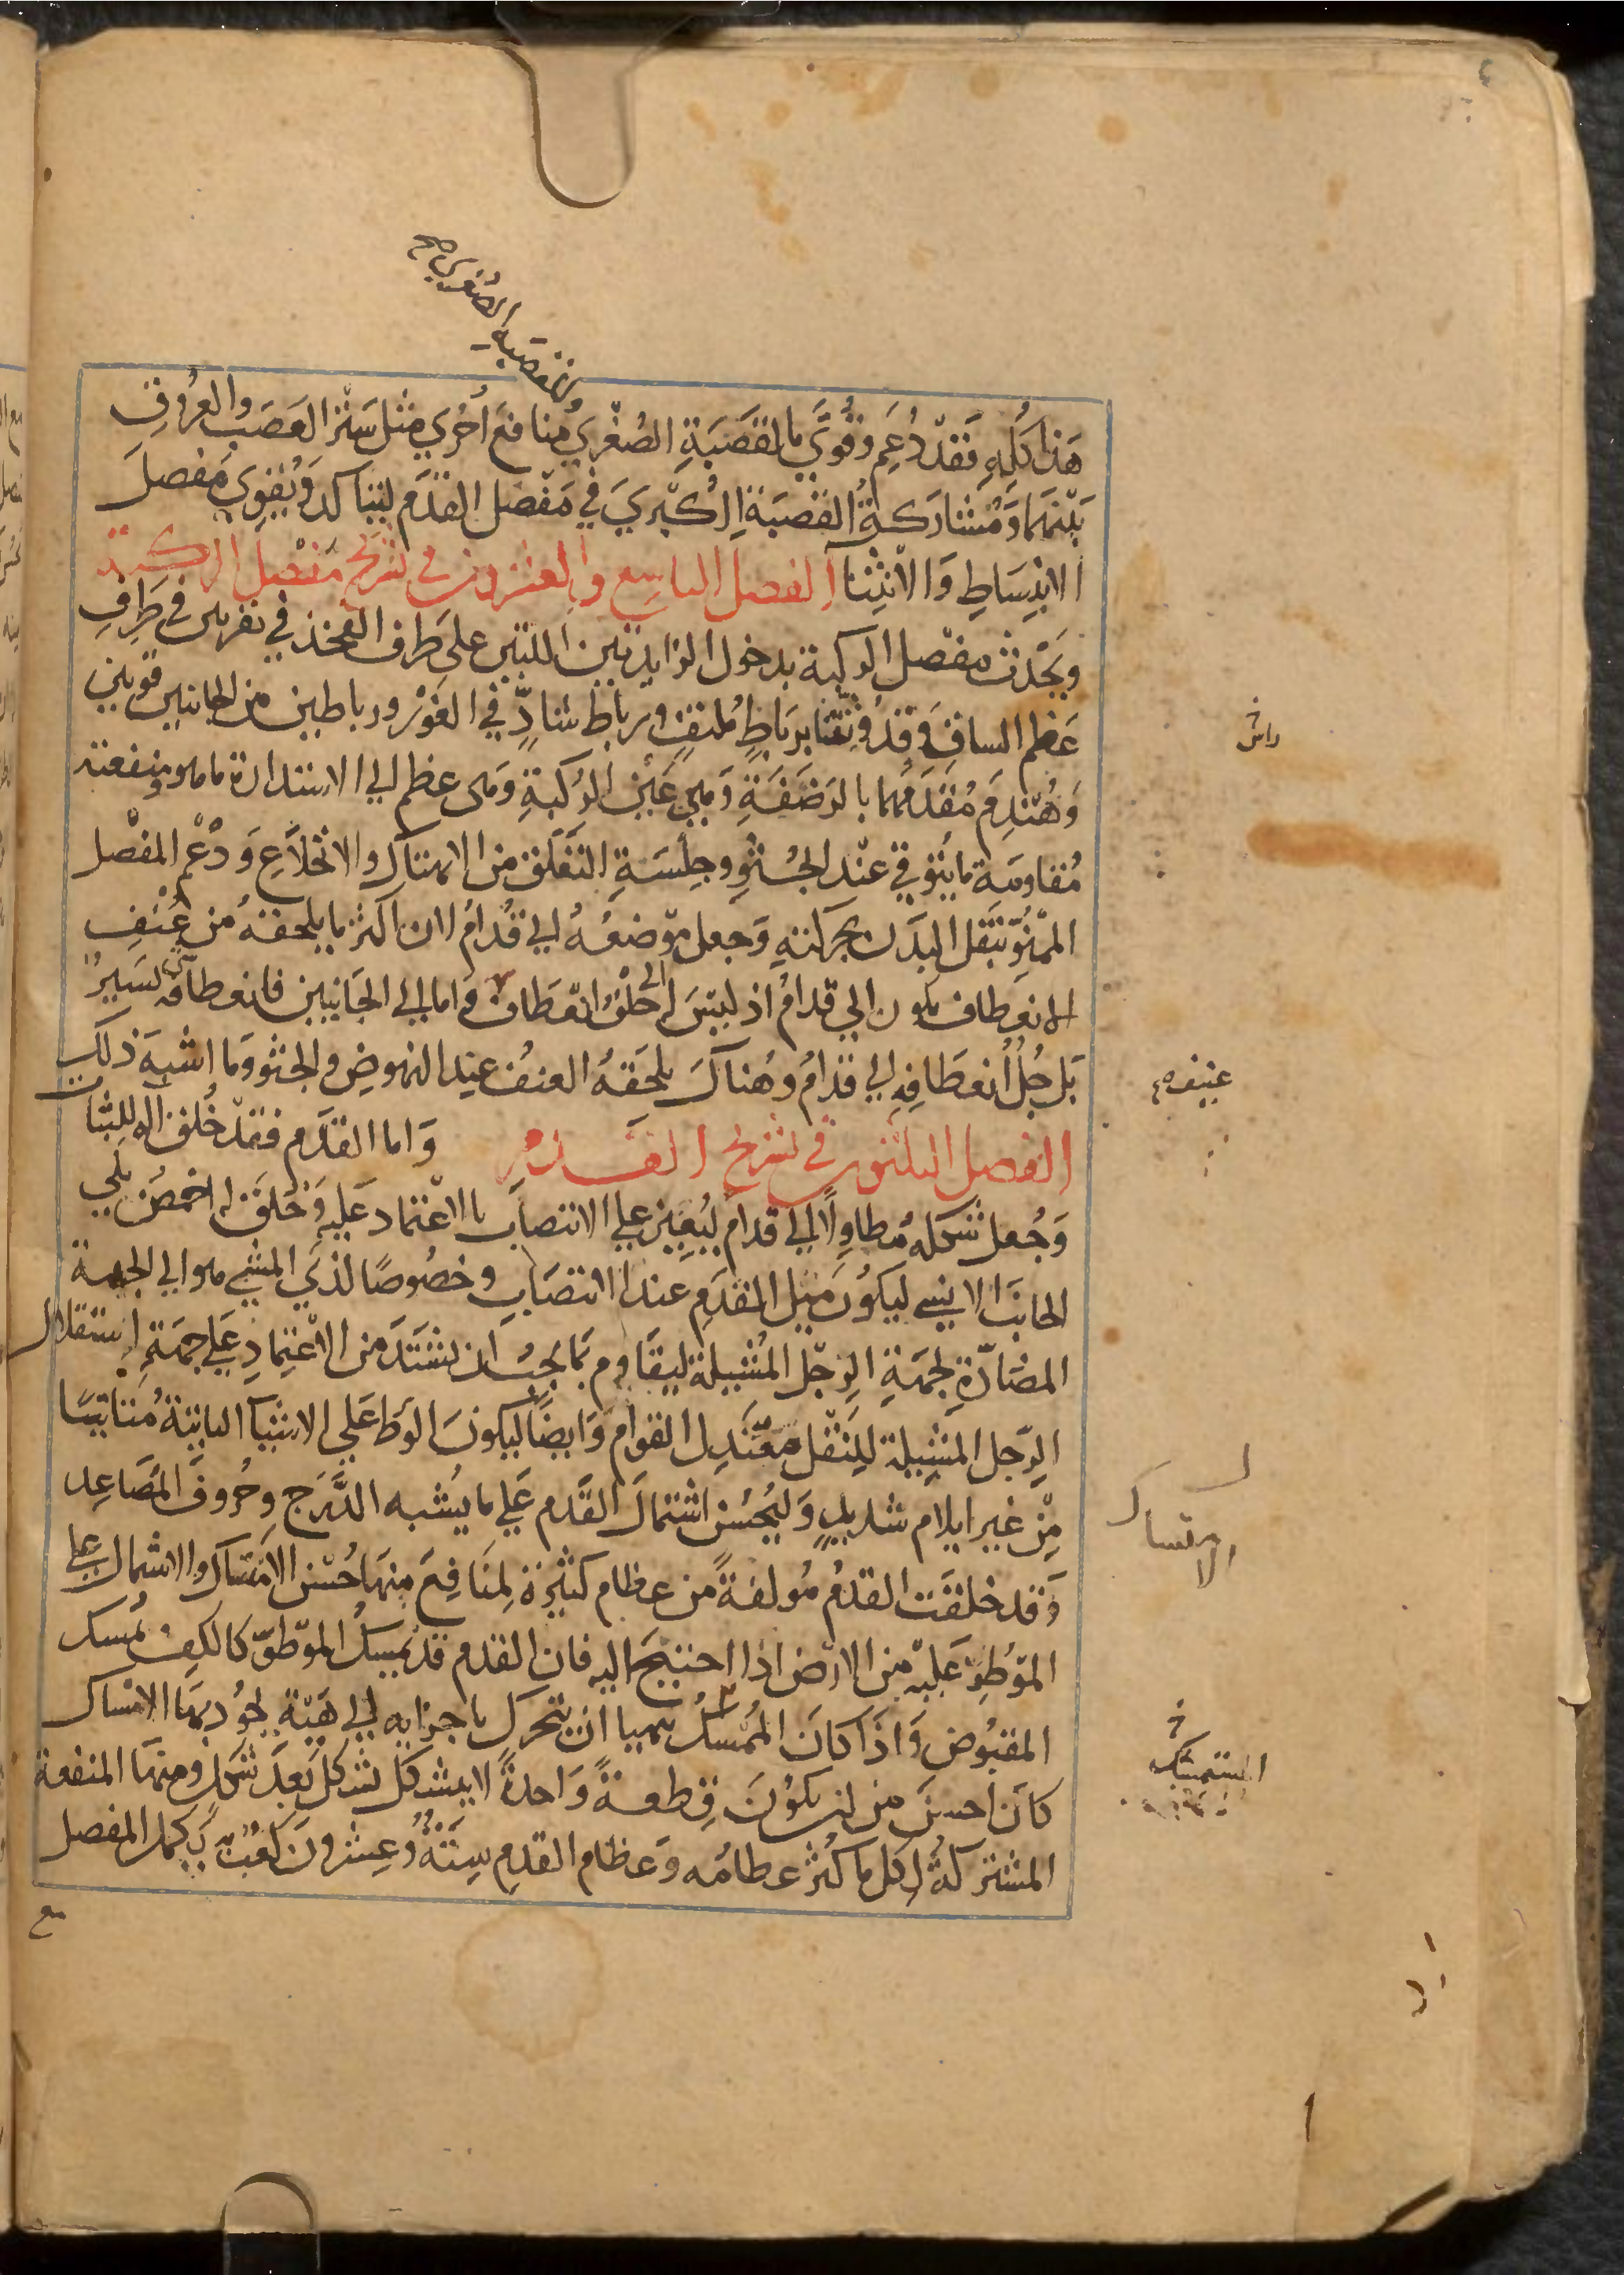 وللقصبة الصغرى صح
هَذا كُلِه فَقدْ دُعِمَ وقُوّىَ بالقصَبَةِ الصُغْري مُنافعَ اُخْرى مثل سَتْر العَصَب والعُروُقِ
بَيْنَهمَا وَمُشَارَكةُ القصَبَةِ الكُبْرىَ في مَفْصَل القدَم ليتاكدَ وَيُقوِى مَفصلَ
الانبِسَاطِ وَالانثنا الفصل التاسع والعشرون في تشريح مفصل الركبة
ويَحْدث مفصل الركبة بدخول الزايدتين اللتين على طرف الفخذ في نقرتين في طرفِ
عَظم الساقِ وَقدْ وُثّقتَا برَباطٍ مُلتفٍ ورباط شادٍّ في الغَوْر ورباطين من الجانبين قويين
وَهُنْدِمَ مُقدَمُهُما بالرَضَفَةِ وَهيَ عَيْن الرُكبةِ وَهى عظم الى الاستدارة ماهو ومنفعته
مُقاومَة ما يتوقي عنْد الجُثوِ وجِلْسَةِ التَعَلق من الانهتاك والانخلاَعِ وَدُعْم المفصل
الممْنُوّ بنَقل البَدَن بحركتهِ وَجعل موْضعُهُ الى قُدامُ لان اكثر ما يلحقهُ من عُنْفِ
الانعطاف يكون الى قدامُ اذ ليْسَ له الى خلْفُ انعَطاف واما الى الجَانبين فانعطافه يَسَيرٌ
بَل جُلُ انعطَافِهِ الى قدامُ وهُناكَ يلحَقهُ العنفُ عند النهوضِ والجثو وَما اشبهَ ذلك
الفصل الثلثون في تشريح القدم وَاما القدَم فقدْ خُلق اله للِثبات
وَجُعل شكله مُطاوِلاً الى قدامُ ليُعِين على الانتصاب بالاعْتماد عَليهِ وَخُلقَ له اخمصُ يلي
الجانبَ الانسى ليكوُن مَيل القدَمِ عند الانتصَاب وخصُوصًا لذَي المشى هو الى الجهة
المضُادّةِ لجهَةِ الرِجْل المُشيلة ليقَاوم بمَا يَجبُ ان يشتَدّ من الاعْتِمادِ عَلى جهَةِ استقلال
الرِّجل المشيلة للنَقْل معْتَدِل القوام وَايضًا ليكونَ الوَطْ عَلى الاشيا الناتئة مُتأتيًا
مِنْ غير ايلام شديدٍ وَليُحْسُن اشتمال القدم عَلى ما يُشبه الدَّرَج وحُروفَ المَصَاعِد
وَقد خلقَت القدمُ مُولفةً من عظام كثيرة لِمنَافِعَ منهَا حُسْن الامتسَاك والاشتمال على
الموْطوّ عَليْه من الارْض اذا احتيج اليه فان القدم قد يمسك الموْطوّ كالكف يمسك
المقبُوض وَاذَا كانَ المُمْسكُ يتهيا ان يتحركَ باجزايه الى هَيْة يجُود بهَا الامْساك
كانَ احسنَ من ان يكوُنَ قِطعةً وَاحدةً لايتشكل بشكل بَعدَ شَكل ومنهَا المنفعة
المشتركَةُ لِكل ما كثرَ عظامُه وَعظام القدم سِتَةٌ وَعِشرونَ كعْبٌ به يَكمل المفصل
مع
عنيف صح
الامتساك
المستمسك